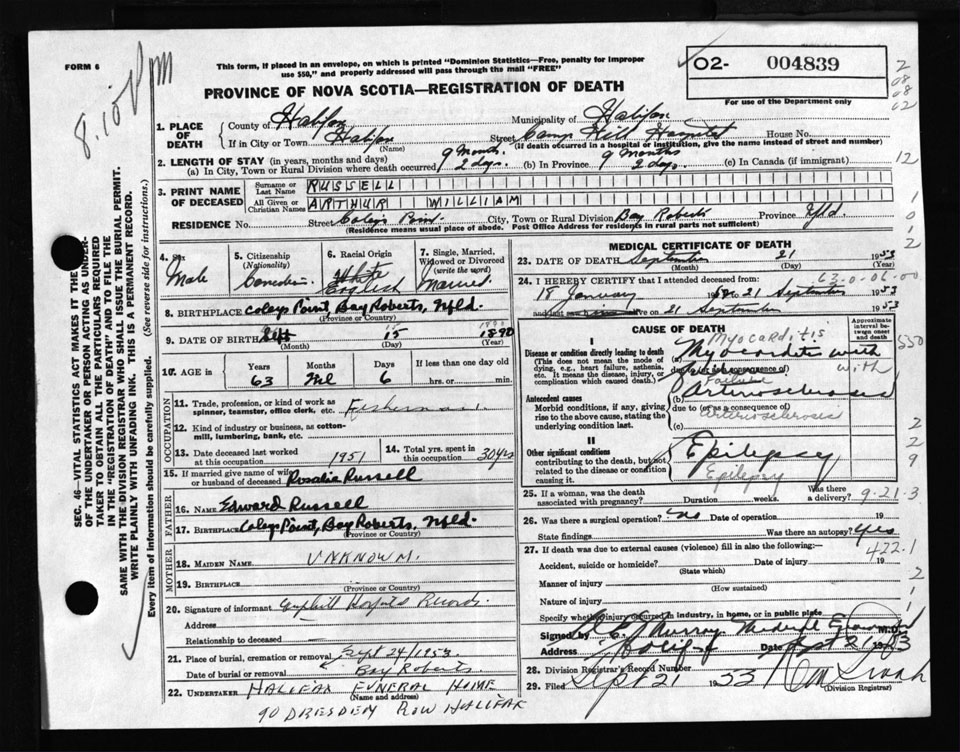 FORM 6
This form, if placed in an envelope, on which is printed "Dominion Statistics—Free, penalty for improper
use $50," and properly addressed will pass through the mail "FREE"
PROVINCE OF NOVA SCOTIA—REGISTRATION OF DEATH
02- 004839
For use of the Department only
8.10 pm
1. PLACE OF DEATH
County of Halifax Municipality of Halifax
If in City or Town Halifax (Name) Street Camp Hill Hospital House No.
(If death occurred in a hospital or institution, give the name instead of street and number)
2. LENGTH OF STAY (in years, months and days)
(a) In City, Town or Rural Division where death occurred 9 months 2 days. (b) In Province 9 months 2 days. (c) In Canada (if immigrant)
3. PRINT NAME OF DECEASED
Surname or Last Name RUSSELL
All Given or Christian Names ARTHUR WILLIAM
RESIDENCE No. Street Coleys Point City, Town or Rural Division Bay Roberts Province Nfld.
(Residence means usual place of abode. Post Office Address for residents in rural parts not sufficient)
4. Sex Male
5. Citizenship (Nationality) Canadian
6. Racial Origin White English
7. Single, Married, Widowed or Divorced (write the word) Married
8. BIRTHPLACE Coleys Point, Bay Roberts, Nfld.
(Province or Country)
9. DATE OF BIRTH Sept 15 1890
(Month) (Day) (Year)
10. AGE in Years 63 Months Nil Days 6 If less than one day old hrs. or min.
OCCUPATION
11. Trade, profession or kind of work as spinner, teamster, office clerk, etc. Fisherman.
12. Kind of industry or business, as cotton-mill, lumbering, bank, etc.
13. Date deceased last worked at this occupation 1951
14. Total yrs. spent in this occupation 30 yrs
15. If married give name of wife or husband of deceased Rosalie Russell
FATHER
16. NAME Edward Russell
17. BIRTHPLACE Coleys Point, Bay Roberts, Nfld.
(Province or Country)
MOTHER
18. MAIDEN NAME UNKNOWN.
19. BIRTHPLACE
(Province or Country)
20. Signature of informant Camphill Hospital Records.
Address
Relationship to deceased
21. Place of burial, cremation or removal Sept 24/1953
Date of burial or removal Bay Roberts.
22. UNDERTAKER HALIFAX FUNERAL HOME
(Name and address)
90 DRESDEN ROW HALIFAX
MEDICAL CERTIFICATE OF DEATH
23. DATE OF DEATH September 21 1953
(Month) (Day) (Year)
24. I HEREBY CERTIFY that I attended deceased from: 63-0-06-00
18 January to 21 September 1953
and last saw h alive on 21 September 1953
CAUSE OF DEATH
Approximate interval between onset and death
I
Disease or condition directly leading to death
(This does not mean the mode of dying, e.g., heart failure, asthenia, etc. It means the disease, injury, or complication which caused death.)
Myocarditis
(a) Myocarditis with
with
Failure
Antecedent causes
Morbid conditions, if any, giving rise to the above cause, stating the underlying condition last.
(b) Arteriosclerosis
due to (or as a consequence of)
Arteriosclerosis
(c)
II
Other significant conditions
contributing to the death, but not related to the disease or condition causing it.
Epilepsy
Epilepsy
25. If a woman, was the death associated with pregnancy? Duration weeks. Was there a delivery?
9-21-3
26. Was there a surgical operation? no Date of operation 19
State findings Was there an autopsy? Yes
422.1
27. If death was due to external causes (violence) fill in also the following:—
Accident, suicide or homicide? Date of injury 19
(State which)
Manner of injury
(How sustained)
Nature of injury
Specify whether injury occurred in industry, in home, or in public place
Signed by Murray Medical Examiner
Address Halifax Date Sept 21 1953
28. Division Registrar's Record Number
29. Filed Sept 21 1953
(Division Registrar)
SEC. 46—VITAL STATISTICS ACT MAKES IT THE DUTY
OF THE UNDERTAKER OR PERSON ACTING AS UNDER-
TAKER TO OBTAIN ALL THE PARTICULARS REQUIRED
IN THE "REGISTRATION OF DEATH" AND TO FILE THE
SAME WITH THE DIVISION REGISTRAR WHO SHALL ISSUE THE BURIAL PERMIT.
WRITE PLAINLY WITH UNFADING INK. THIS IS A PERMANENT RECORD.
Every item of information should be carefully supplied. (See reverse side for instructions.)